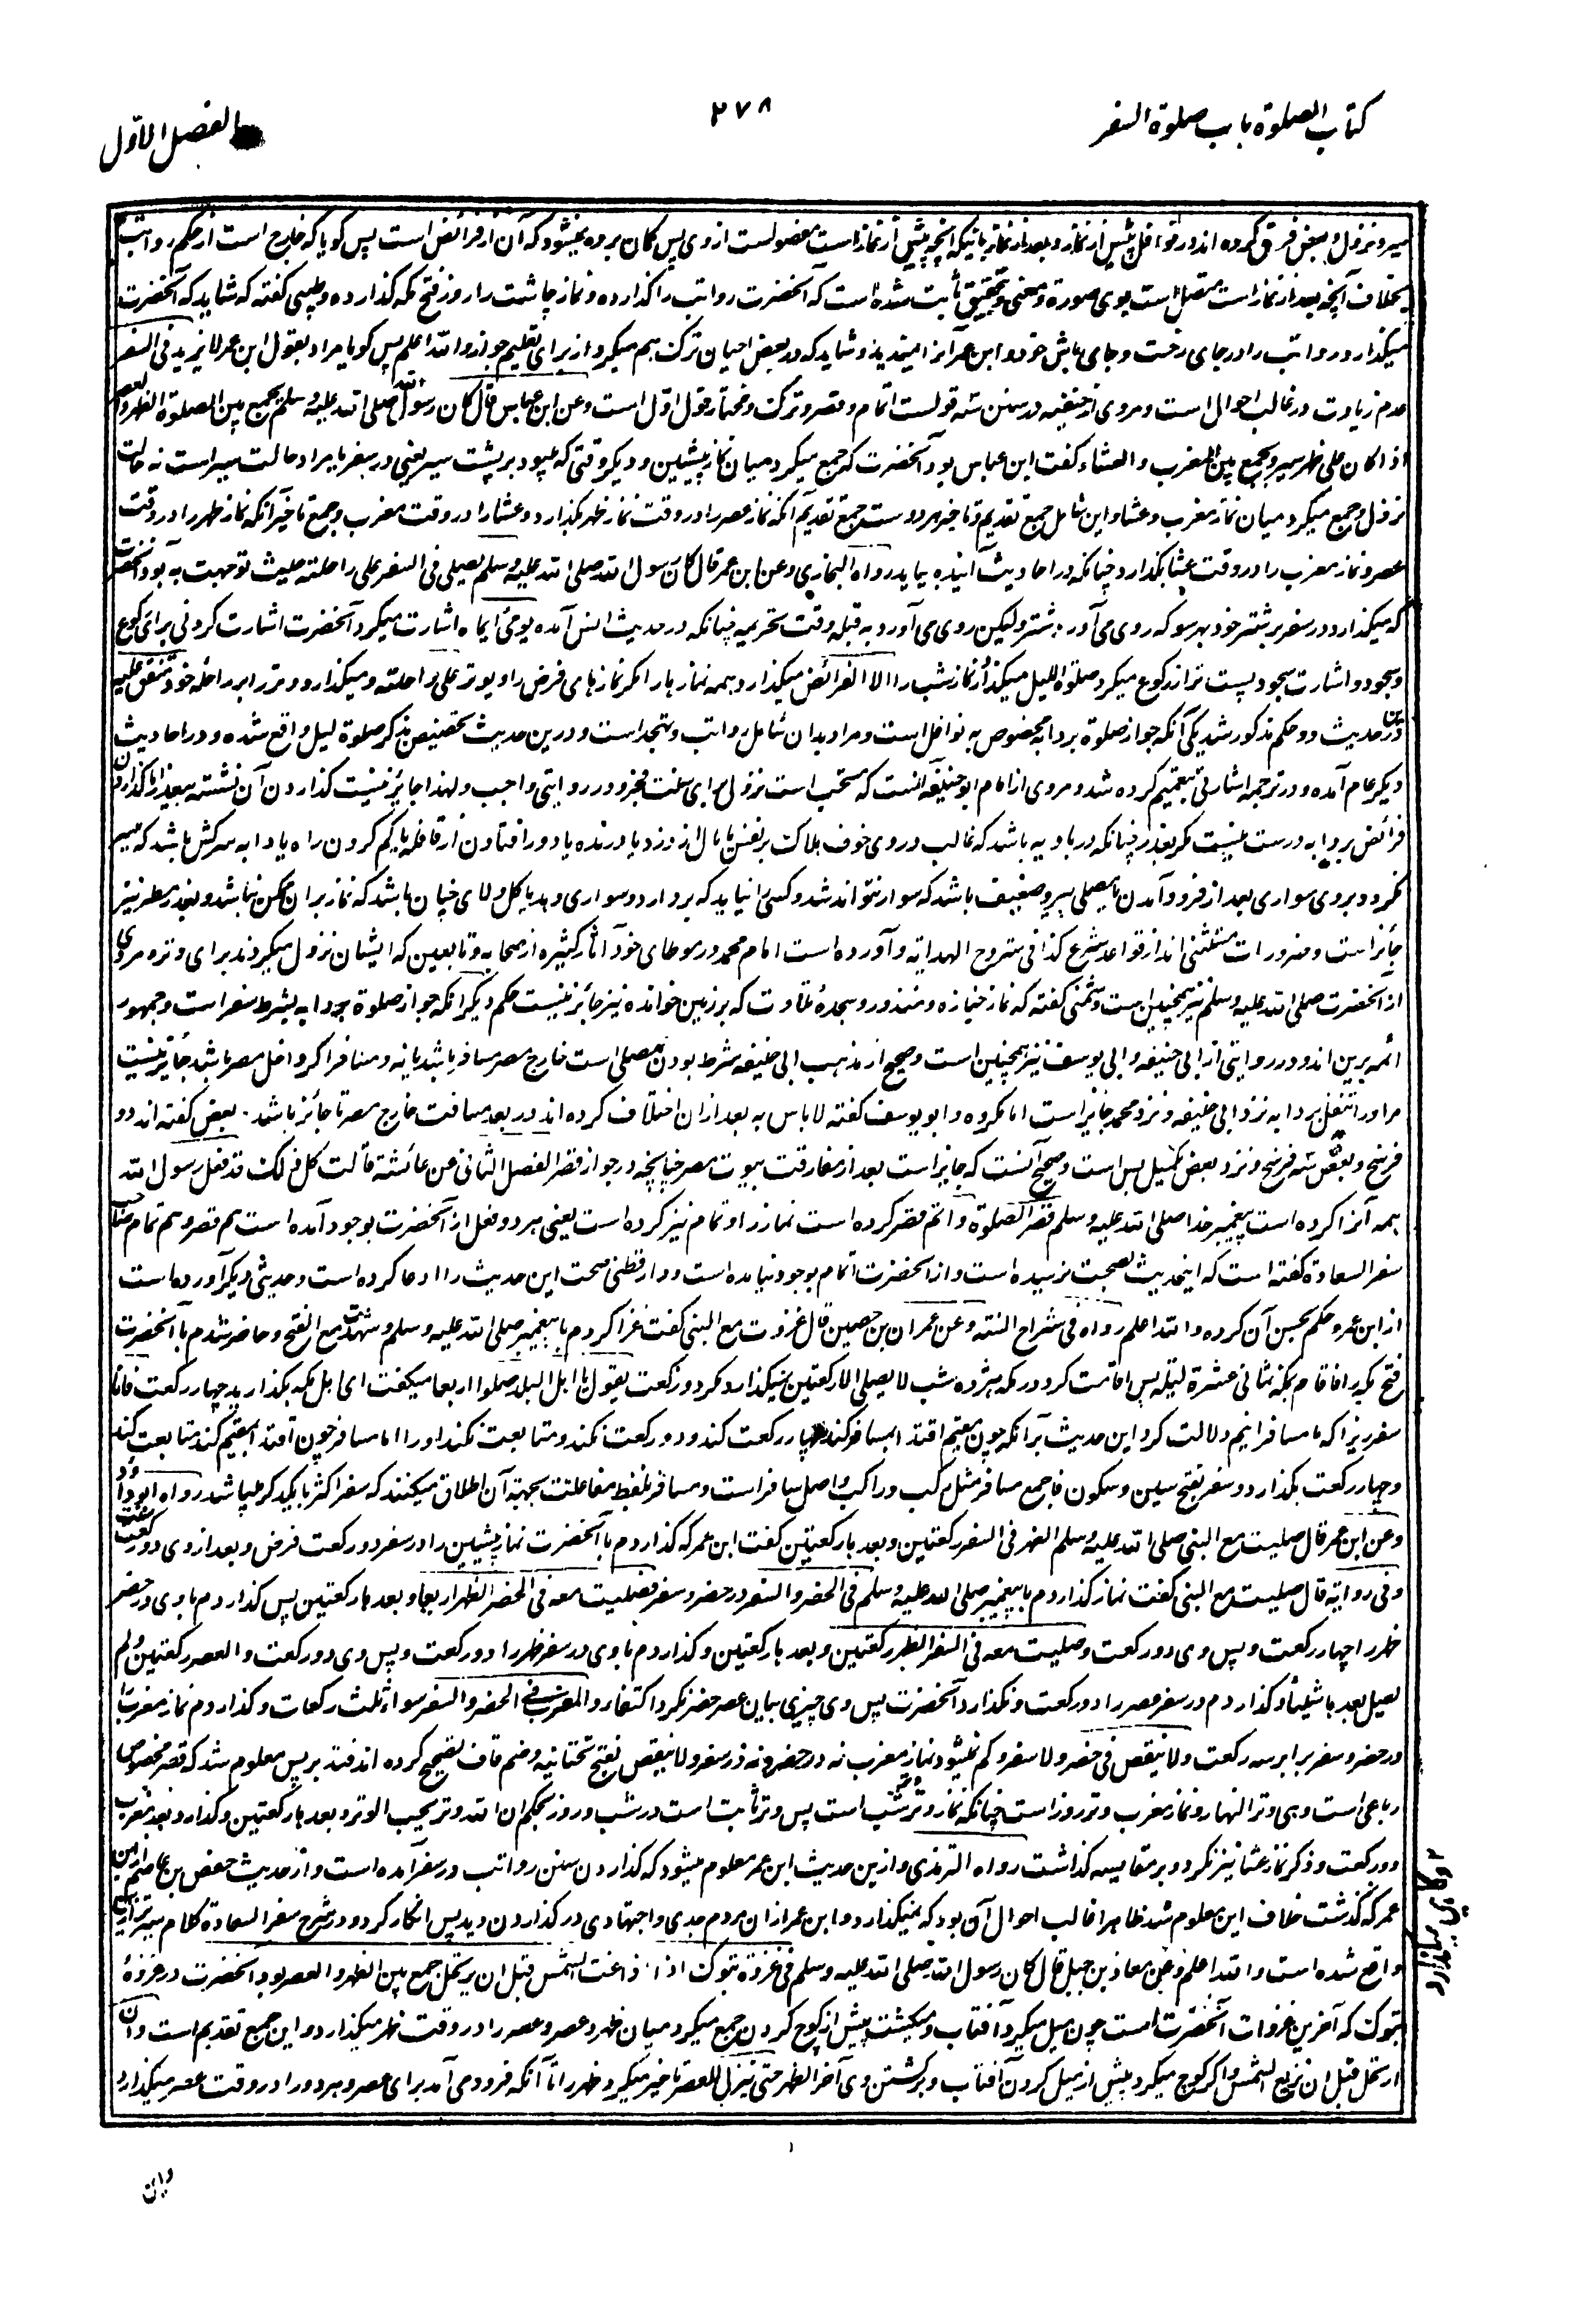 کتاب الصلوة باب صلوة السفر
۲۷۸
الفصل الاوّل
سیر و نزول و بعض فرق کرده اند در نوافل پیش از نماز و بعد از نماز بانیکه آنچه پیش از نماز است مفصولست از وی پس گمان برده نمیشود که آن از فرائض است پس کویا که خارج است از حکم رواتب
بخلاف آنچه بعد از نماز است متصل است بوی صورة و معنی و تحقیق ثابت شده است که آنحضرت رواتب را گذارده و نماز چاشت را روز فتح مکه گذارده و طیبی گفته که شاید که آنحضرت
میگذارد رواتب را در جای رخت و جای باش خود و ابن عمر آنرا نمیدید و شاید که در بعض احیان ترک هم میکرد از برای تعلیم جواز و الله اعلم پس کویا مراد بقول ابن عمر لا یزید فی السفر
عدم زیادت در غالب احوال است و مروی از حنفیه در سنن سه قولست اتمام و قصر و ترک و مختار قول اول است وعن ابن عباس قال کان رسول الله صلی الله علیه وسلم یجمع بین الصلوة الظهر والعصر
اذا کان علی ظهر سیر و یجمع بین المغرب والعشاء گفت ابن عباس بود آنحضرت که جمع میکرد میان نماز پیشین و دیگر وقتی که میبود بر پشت سیر یعنی در سفر با مراد حالت سیر است نه حالت
نزول و جمع میکرد میان نماز مغرب و عشا و این شامل جمع تقدیم و تاخیر هر دو ست جمع تقدیم آنکه نماز عصر را در وقت نماز ظهر بگذارد و عشا را در وقت مغرب و جمع تاخیر آنکه نماز ظهر را در وقت
عصر و نماز مغرب را در وقت عشا بگذارد چنانکه در احادیث آینده بیاید رواه البخاری وعن ابن عمر قال کان رسول الله صلی الله علیه وسلم یصلی فی السفر علی راحلته حیث توجهت به بود آنحضرت
که میگذارد در سفر بر شتر خود بهر سو که روی می آورد شتر ولیکن روی می آورد به قبله وقت تحریمه چنانکه در حدیث انس آمده یومی ایماء اشارت میکرد آنحضرت اشارت کردنی برای رکوع
و سجود و اشارت سجود پست تر از رکوع میکرد صلوة اللیل میگذارد نماز شب را الا الفرائض میگذارد همه نمازها را مگر نماز های فرض را و یوتر علی راحلته و میگذارد وتر را بر راحله خود متفق علیه
درین حدیث دو حکم مذکور شد یکی آنکه جواز صلوة بر دابه مخصوص به نوافل است و مراد بدان شامل رواتب و تهجد است و درین حدیث تخصیص بذکر صلوة لیل واقع شده و در احادیث
دیگر عام آمده و در ترجمه اشارتی بتعمیم کرده شد و مروی از امام ابو حنیفه آنست که مستحب است نزول برای سنت فجر و در روایتی واجب و لهذا جایز نیست گذاردن آن نشسته بیعذر و گذاردن
فرائض بر دابه درست نیست مگر بعذر چنانکه در بادیه باشد که غالب در وی خوف هلاک بر نفس یا مال از دزد یا درنده یا دور افتادن از قافله یا گم کردن راه یا دابه سرکش باشد که میسر
نگردد بروی سواری بعد از فرود آمدن یا مصلی پیر ضعیف باشد که سوار نتواند شد و کسی را نیابد که بر دارد و سواری دهد یا گل و لای چنان باشد که نماز بران ممکن نباشد و بعذر مطر نیز
جائز است و ضرورات مستثنی اند از قواعد شرع کذا فی شروح الهدایة و آورده است امام محمد در موطای خود آثار کثیره از صحابه و تابعین که ایشان نزول میکردند برای وتر و مروی
از آنحضرت صلی الله علیه وسلم نیز همچنین است و شمنی گفته که نماز جنازه و منذور و سجدهٔ تلاوت که بر زمین خوانده نیز جائز نیست حکم دیگر آنکه جواز صلوة بر دابه بشرط سفر است و جمهور
ائمه برین اند و در روایتی از ابی حنیفه و ابی یوسف نیز همچنین است و صحیح از مذهب ابی حنیفه شرط بودن مصلی است خارج مصر مسافر باشد یا نه و مسافر اگر داخل مصر باشد جائز نیست
مر او را تنفل بر دابه نزد ابی حنیفه و نزد محمد جایز است اما مکروه و ابو یوسف گفته لا باس به بعد ازان اختلاف کرده اند در بعد مسافت خارج مصر تا جائز باشد بعض گفته اند دو
فرسخ و بعض سه فرسخ و نزد بعض یک میل بس است و صحیح آنست که جایز است بعد از مفارقت بیوت مصر چنانچه در جواز قصر الفصل الثانی عن عائشة قالت کل ذلک قد فعل رسول الله
همه آنرا کرده است پیغمبر خدا صلی الله علیه وسلم قصر الصلوة و اتم قصر کرده است نماز را و تمام نیز کرده است یعنی هر دو فعل از آنحضرت بوجود آمده است هم قصر و هم تمام صاحب
سفر السعادة گفته است که این حدیث بصحت نرسیده است و از آنحضرت اتمام بوجود نیامده است و دار قطنی صحت این حدیث را ادعا کرده است و حدیثی دیگر آورده است
از ابن عمر و حکم بحسن آن کرده و الله اعلم رواه فی شرح السنة وعن عمران بن حصین قال غزوت مع النبی گفت غزا کردم با پیغمبر صلی الله علیه وسلم و شهدت مع الفتح و حاضر شدم با آنحضرت
فتح مکه را فاقام بمکة ثمانی عشرة لیلة پس اقامت کرد در مکه هژده شب لا یصلی الا رکعتین نمیگذارد مگر دو رکعت یقول یا اهل البلد صلوا اربعا میگفت ای اهل مکه بگذارید چهار رکعت فانا
سفر زیرا که ما مسافرانیم دلالت کرد این حدیث بر آنکه چون مقیم اقتدا بمسافر کند چهار رکعت کند و دو رکعت نکند و متابعت نکند او را اما مسافر چون اقتدا بمقیم کند متابعت کند
و چهار رکعت بگذارد و سفر بفتح سین و سکون فا جمع مسافر مثل رکب و راکب و اصل سافر است و مسافر بلفظ مفاعلت بجهة آن اطلاق میکنند که سفر اکثر با یکدیگر میباشد رواه ابو داؤد
وعن ابن عمر قال صلیت مع النبی صلی الله علیه وسلم الظهر فی السفر رکعتین و بعد ها رکعتین گفت ابن عمر که گذاردم با آنحضرت نماز پیشین را در سفر دو رکعت فرض و بعد از وی دو رکعت سنت
وفی روایة قال صلیت مع النبی گفت نماز گذاردم با پیغمبر صلی الله علیه وسلم فی الحضر والسفر در حضر و سفر فصلیت معه فی الحضر الظهر اربعا و بعد ها رکعتین پس گذاردم با وی در حضر
ظهر را چهار رکعت و پس وی دو رکعت وصلیت معه فی السفر الظهر رکعتین و بعد ها رکعتین و گذاردم با وی در سفر ظهر را دو رکعت و پس وی دو رکعت والعصر رکعتین ولم
یصل بعدها شیئا و گذاردم در سفر عصر را دو رکعت و نگذارد آنحضرت پس وی چیزی بیان عصر حضر نکرد اکتفاء والمغرب فی الحضر والسفر سواء ثلث رکعات و گذاردم نماز مغرب را
در حضر و سفر برابر سه رکعت ولا ینقص فی حضر ولا سفر و کم نمیشود نماز مغرب نه در حضر و نه در سفر ولا ینقص بفتح تحتانیه و ضم قاف تصحیح کرده اند فتدبر پس معلوم شد که قصر مخصوص
رباعی است وهی وتر النهار و نماز مغرب وتر روز است چنانکه نماز وتر وتر شب است پس وتر ثابت است در شب و روز بحکم ان الله وتر یحب الوتر و بعد ها رکعتین و گذارد بعد مغرب
دو رکعت و ذکر نماز عشا نیز نکرد و بر مقایسه گذاشت رواه الترمذی و ازین حدیث ابن عمر معلوم میشود که گذاردن سنن رواتب در سفر آمده است و از حدیث حفص بن عاصم از ابن
عمر که گذشت خلاف این معلوم شد ظاهرا غالب احوال آن بود که نمیگذارد و ابن عمر ازان مردم جدی و اجتهادی در گذاردن دید پس انکار کرد و در شرح سفر السعادة کلام
واقع شده است و الله اعلم وعن معاذ بن جبل قال کان رسول الله صلی الله علیه وسلم فی غزوة تبوک اذا زاغت الشمس قبل ان یرتحل جمع بین الظهر والعصر بود آنحضرت در غزوهٔ
تبوک که آخرین غزوات آنحضرت است چون میل میکرد آفتاب و میگشت پیش از کوچ کردن جمع میکرد میان ظهر و عصر و عصر را در وقت ظهر میگذارد و این جمع تقدیم است وان
ارتحل قبل ان تزیغ الشمس و اگر کوچ میکرد پیش از میل کردن آفتاب و برگشتن وی آخر الظهر حتی ینزل للعصر تاخیر میکرد ظهر را تا آنکه فرود می آمد برای عصر و هر دو را در وقت عصر میگذارد
وان